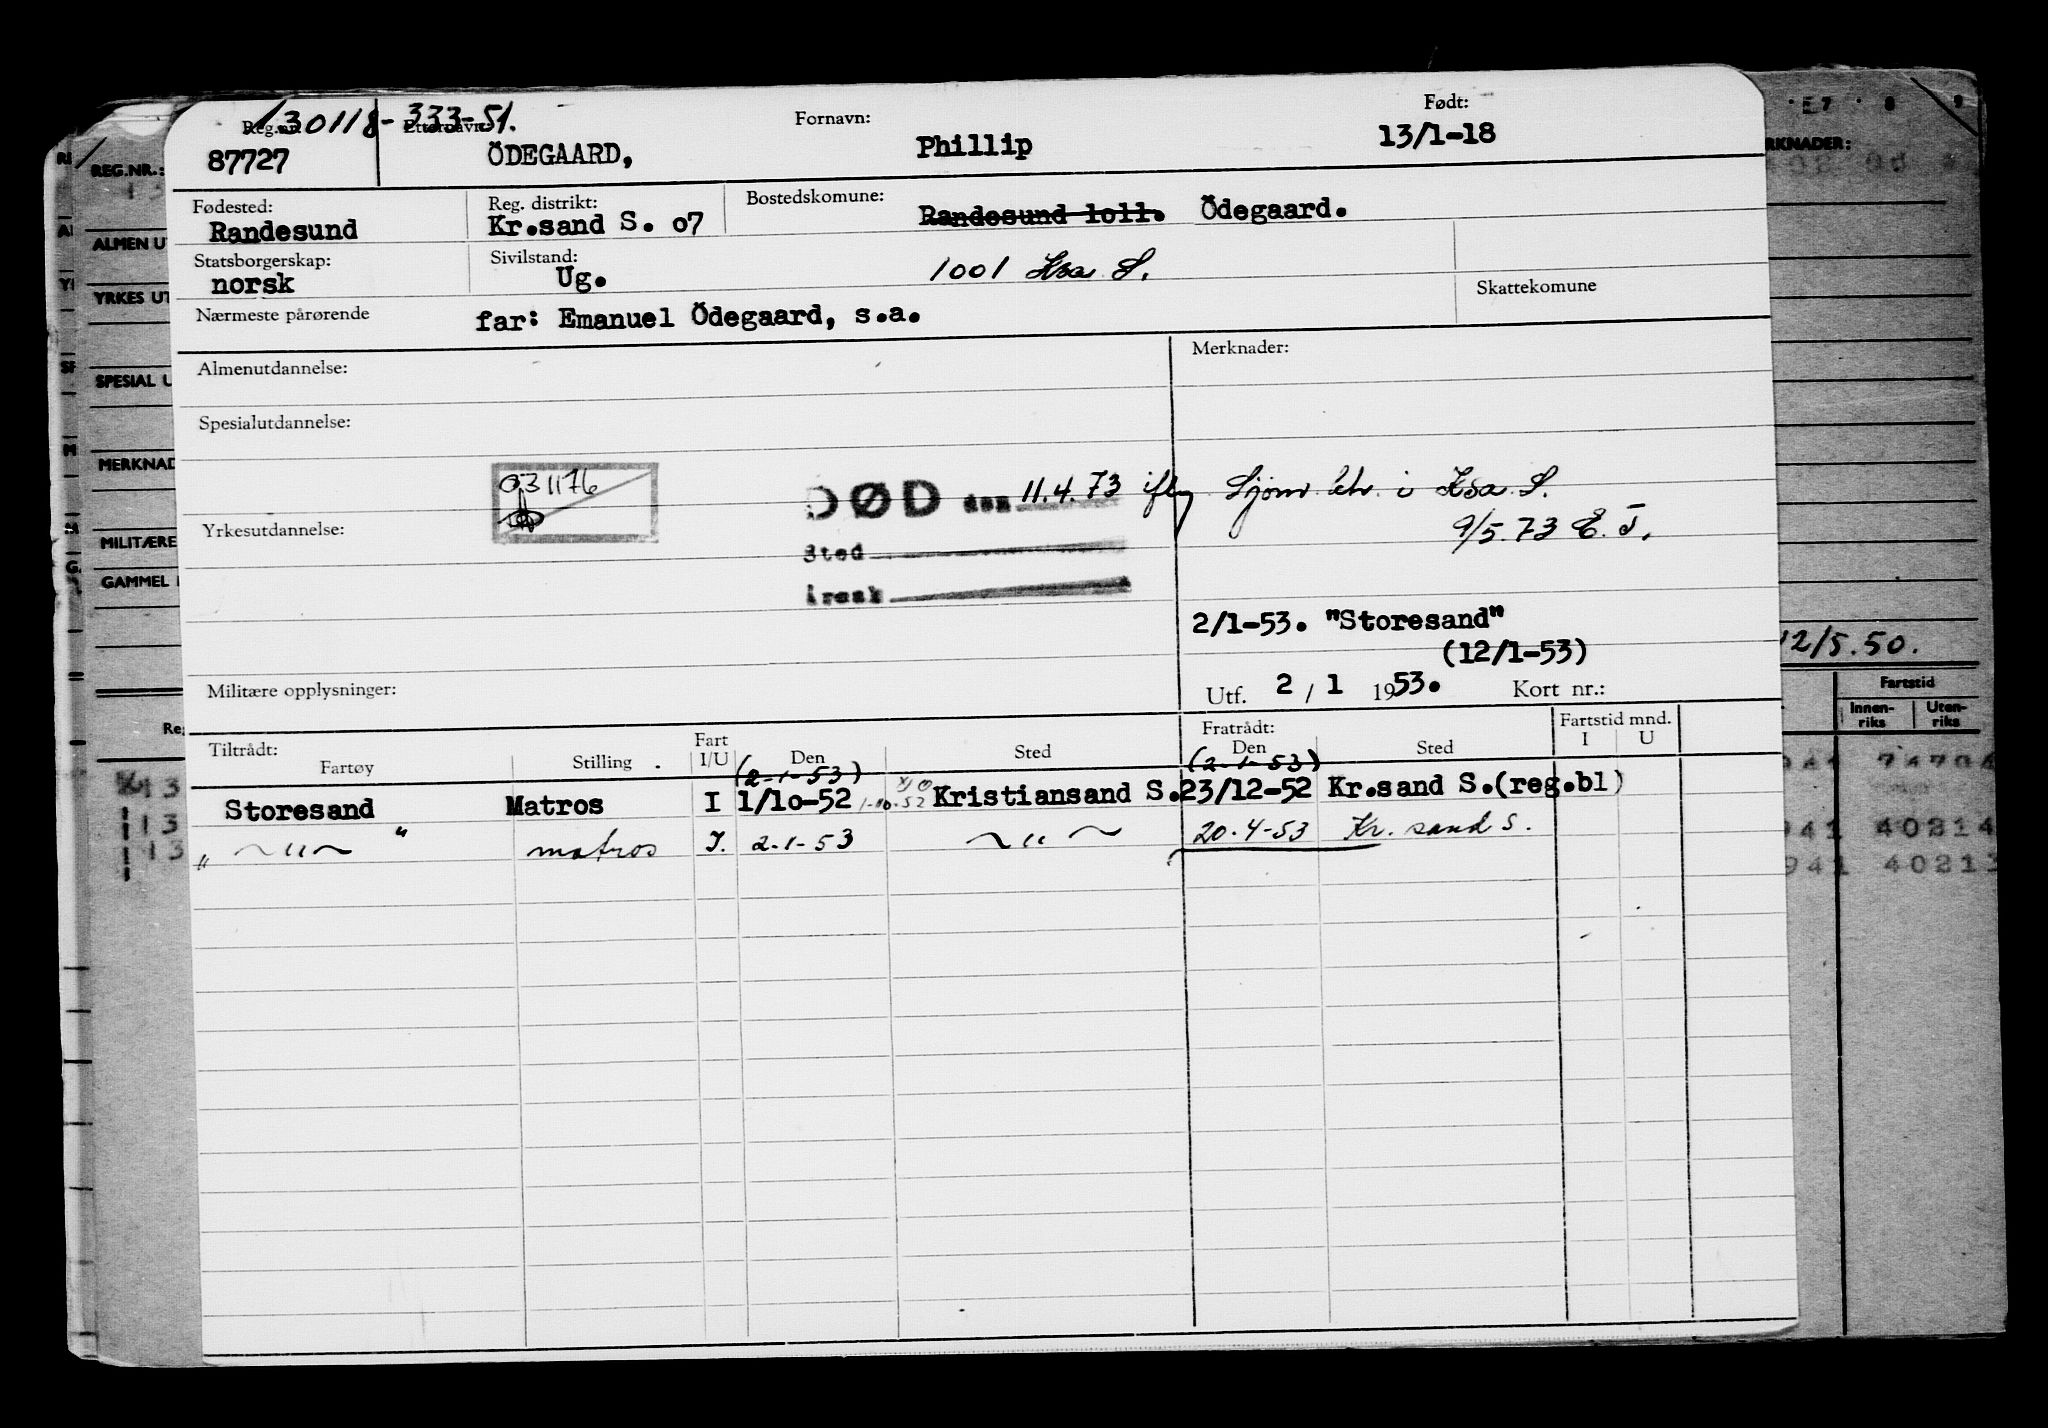 130118-333-51.
Reg.nr. Etternavn: Fornavn: Født:
87727 ÖDEGAARD, Phillip 13/1-18
Fødested: Reg. distrikt: Bostedskomune:
Randesund Kr.sand S. o7 Randesund 1o11. Ödegaard.
Statsborgerskap: Sivilstand:
norsk Ug. 1001 Krsa S.
Skattekomune
Nærmeste pårørende far: Emanuel Ödegaard, s.a.
Almenutdannelse: Merknader:
Spesialutdannelse:
031176
DØD den 11.4.73 iflg Sjøm. ktr. i Krsa S.
9/5.73 E. T.
Yrkesutdannelse:
Sted
Årsak
2/1-53. "Storesand"
(12/1-53)
Militære opplysninger: Utf. 2 / 1 1953. Kort nr.:
Tiltrådt: Fratrådt: Fartstid mnd.
Fartøy Stilling Fart I/U Den Sted Den Sted I U
(2-1-53) (2-1-53)
Storesand Matros I 1/1o-52 1-10-52 Kristiansand S. 23/12-52 Kr.sand S.(reg.bl)
" ~ " ~ " matros I. 2-1-53 ~ " ~ 20.4-53 Kr. sand S.
REG.NR.:
ALMEN UT
YRKES UT
SPESIAL U
MERKNAD
MILITÆRE
GAMMEL
Re
13
13
13
E7 8 9
RKNADER:
12/5.50.
Fartstid
Innen-riks Uten-riks
941 74706
941 40214
941 40213